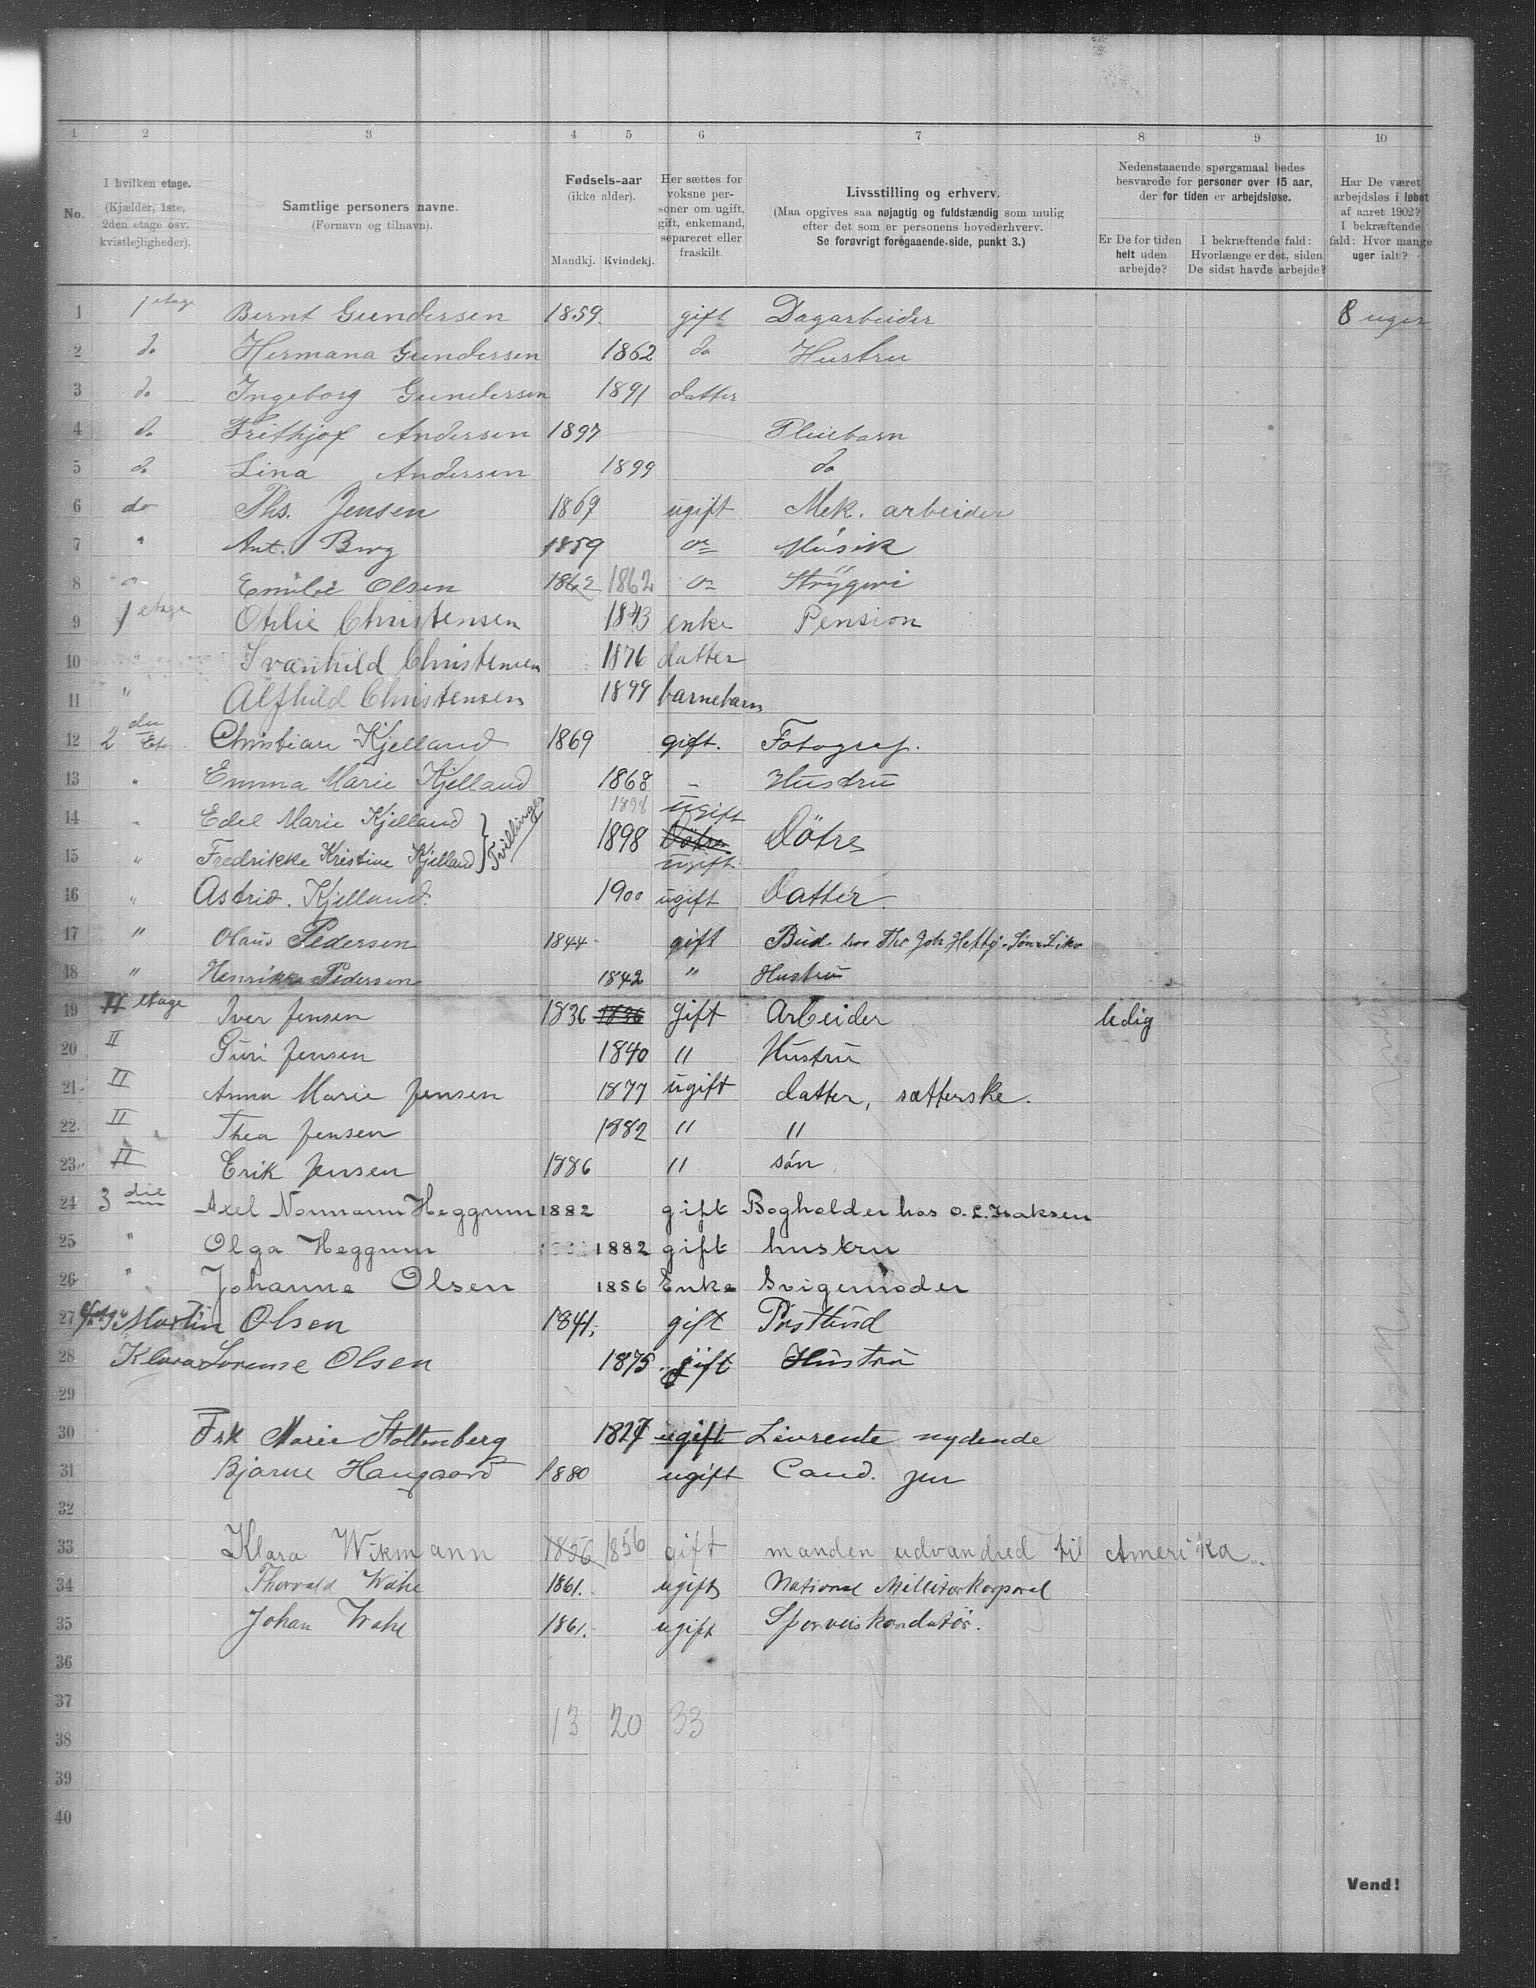 1 2 3 4 5 6 7 8 9 10
No.
I hvilken etage.
(Kjælder, 1ste, 2den etage osv. kvistlejligheder).
Samtlige personers navne.
(Fornavn og tilnavn).
Fødsels-aar
(ikke alder).
Mandkj. Kvindekj.
Her sættes for voksne personer om ugift, gift, enkemand, separeret eller fraskilt.
Livsstilling og erhverv.
(Maa opgives saa nøjagtig og fuldstændig som mulig
efter det som er personens hovederhverv.
Se forøvrigt foregaaende side, punkt 3.)
Nedenstaaende spørgsmaal bedes
besvarede for personer over 15 aar,
der for tiden er arbejdsløse.
Er De for tiden helt uden arbejde?
I bekræftende fald: Hvorlænge er det, siden De sidst havde arbejde?
Har De været arbejdsløs i løbet af aaret 1902? I bekræftende fald: Hvor mange uger ialt?
1 1 etage Bernt Gundersen 1859. gift Dagarbeider 8 uger
2 do Hermana Gundersen 1862 do Hustru
3 do Ingeborg Gundersen 1891 datter
4 do Frithjof Andersen 1897 Pleiebarn
5 do Lina Andersen 1899 do
6 do Ths. Jensen 1869 ugift Mek. arbeider
7 " Ant. Berg 1859 Musik
8 Emilie Olsen 1862 1862 Strygeri
9 1 etage Othlie Christensen 1843 enke Pension
10 " Svanhild Christensen 1876 datter
11 " Alfhild Christensen 1899 barnebarn
12 2 den Et. Christian Kjelland 1869 gift. Fotograf.
13 " Emma Marie Kjelland 1868 – Hustru
14 " Edel Marie Kjelland } Tvillinger 1898 ugift
1898 Døtre Døtre
15 " Fredrikke Kristine Kjelland ugift.
16 " Astrid. Kjelland. 1900 ugift Datter.
17 " Olaus Pedersen 1844 gift Bud. hos Joh
18 " Henrikka Pedersen 1842 " Hustru
19 II etage Iver Jensen 1836 1836 Gift Arbeider ledig
20 II Guri Jensen 1840 " Hustru
21 II Anna Marie Jensen 1877 ugift datter, sætterske.
22 II Thea Jensen 1882 " "
23 II Erik Jensen 1886 " søn
24 3 die Axel Normann Heggum 1882 gift Bogholder hos O. L. Isaksen
25 " Olga Heggum 1882 gift hustru
26 " Johanne Olsen 1856 Enke Svigemoder
27 Martin Olsen 1841. gift Postbud
28 Klara Lovense Olsen 1875. gift Hustru
29
30 Frk Marie Stoltenberg 1827 ugift Livrente nydende
31 Bjarne Haugaard 1880 ugift Cand. jur
32
33 Klara Wikmann 1856 1856 gift manden udvandred til Amerika.
34 Thorvald Wahl 1861. ugift National Millitærkorporal
35 Johan Wahl 1861. ugift Sporveiskonduktør.
36
37
13 20 33
38
39
40
Vend!